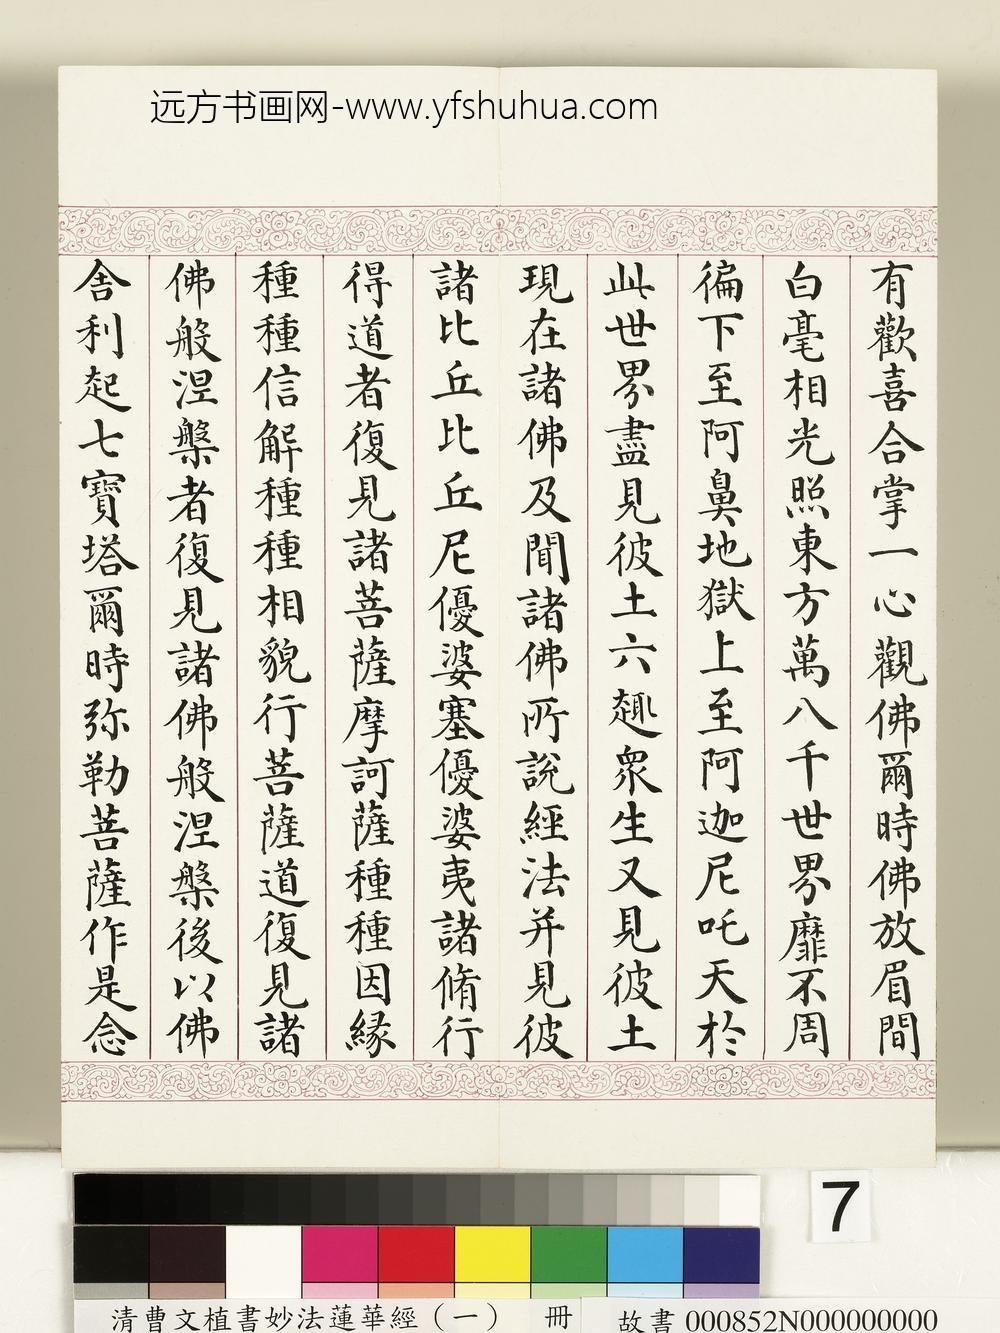 远方书画网-www.yfshuhua.com
有歡喜合掌一心觀佛爾時佛放眉間
白毫相光照東方萬八千世界靡不周
徧下至阿鼻地獄上至阿迦尼吒天於
此世界盡見彼土六趣衆生又見彼土
現在諸佛及聞諸佛所說經法并見彼
諸比丘比丘尼優婆塞優婆夷諸脩行
得道者復見諸菩薩摩訶薩種種因緣
種種信解種種相貌行菩薩道復見諸
佛般涅槃者復見諸佛般涅槃後以佛
舍利起七寶塔爾時弥勒菩薩作是念
7
清曹文植書妙法蓮華經（一） 冊
故書000852N000000000